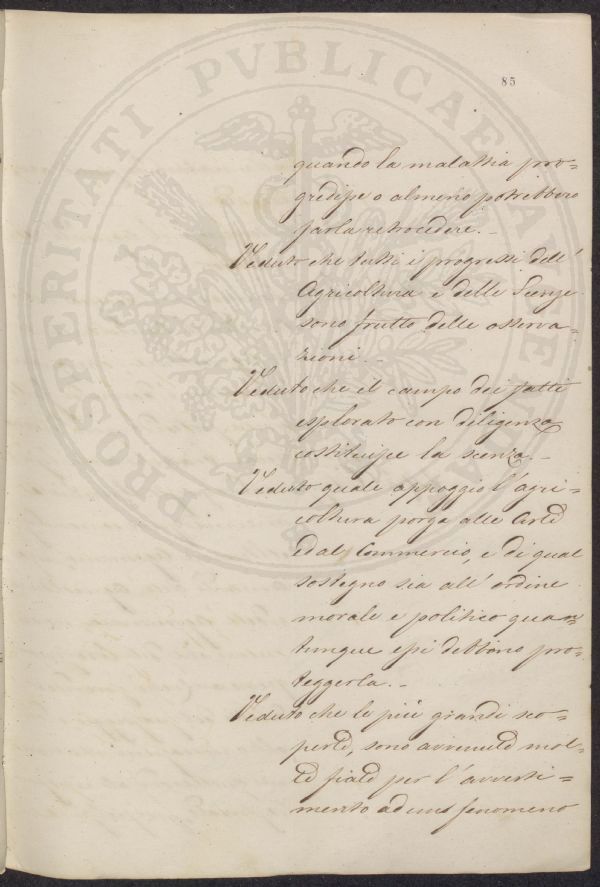 85
quando la malattia pro=
gredisse o almeno potrebbero
farla retrocedere. -
Veduto che tutti i progressi dell'
Agricoltura e delle Scenze
sono frutto delle osserva=
zioni. -
Veduto che il campo dei fatti
esplorato con diligenza
costituisce la scenza. -
Veduto quale appoggio l'agri=
coltura porga alle Arti
ed al Commercio, e di qual
sostegno sia all'ordine
morale e politico quan=
tunque essi debbono pro=
teggerla. -
Veduto che le più grandi sco=
perte, sono avvenute mol=
te fiate per l'avverti=
mento ad uno fenomeno
PROSPERITATI PVBLICAE AVGENDAE